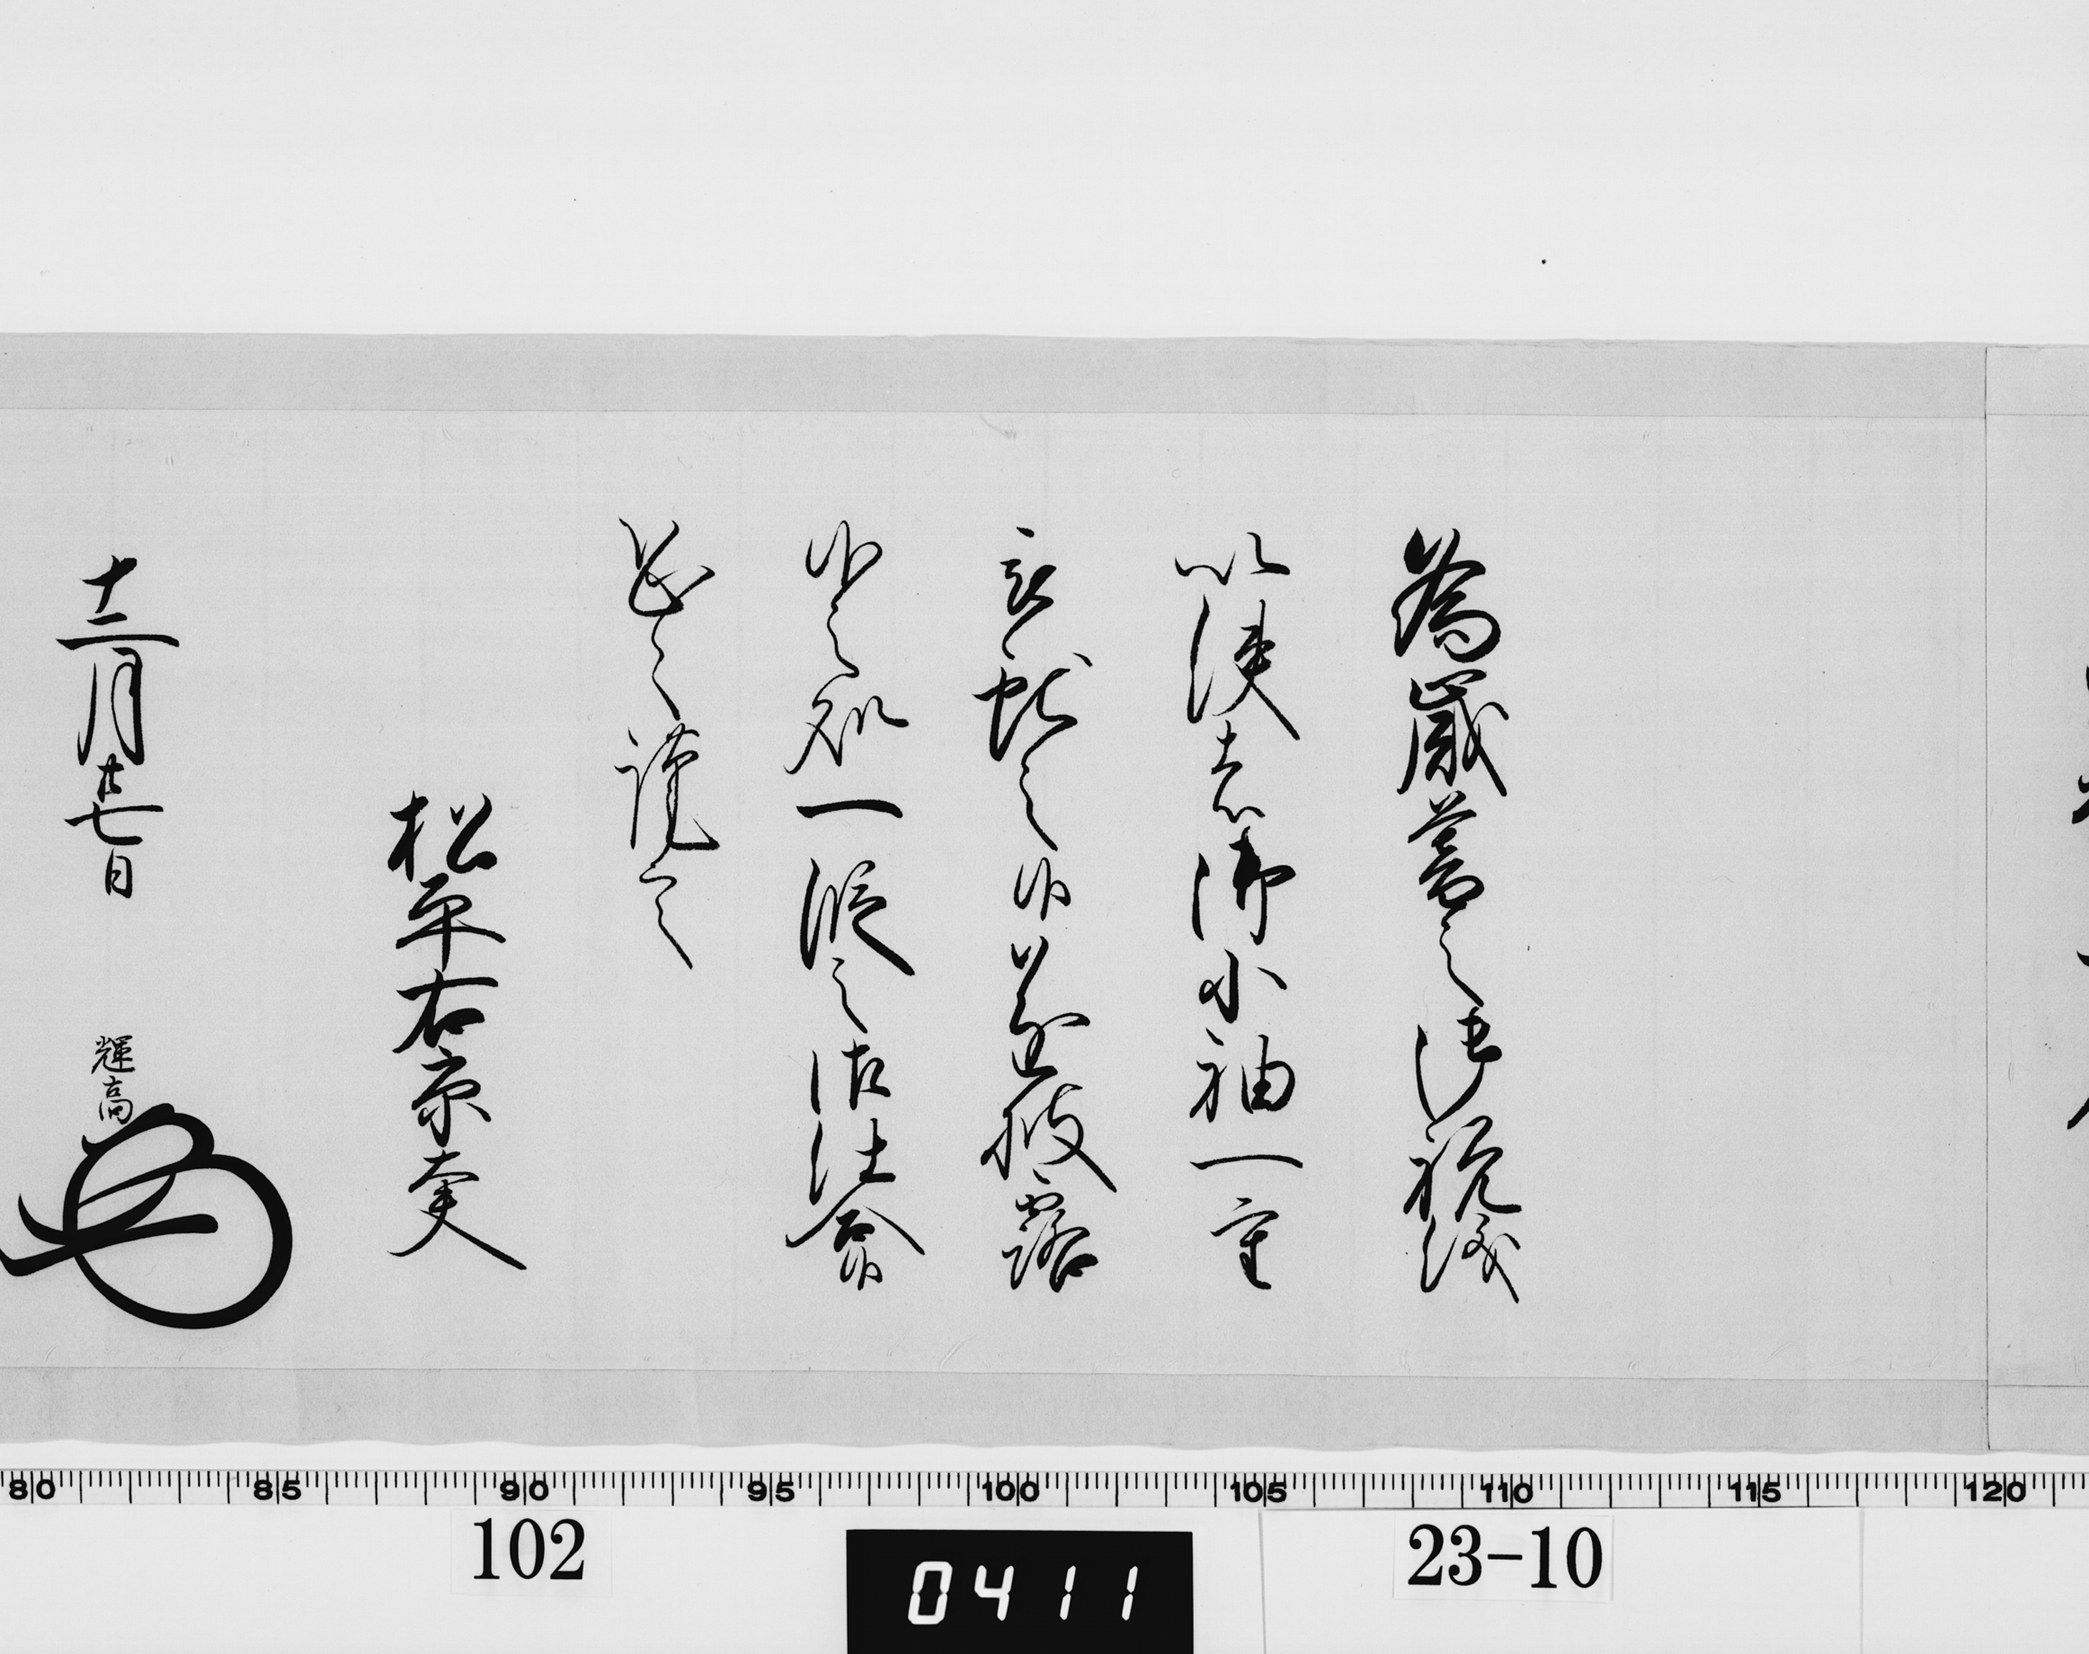 為歳暮之御祝儀
以使者御小袖一重
被献之候遂披露
候之処一段之御仕合候
恐々謹言
松平右京大夫
十二月廿七日 輝高
80 85 90 95 100 105 110 115 120
102 0411 23-10